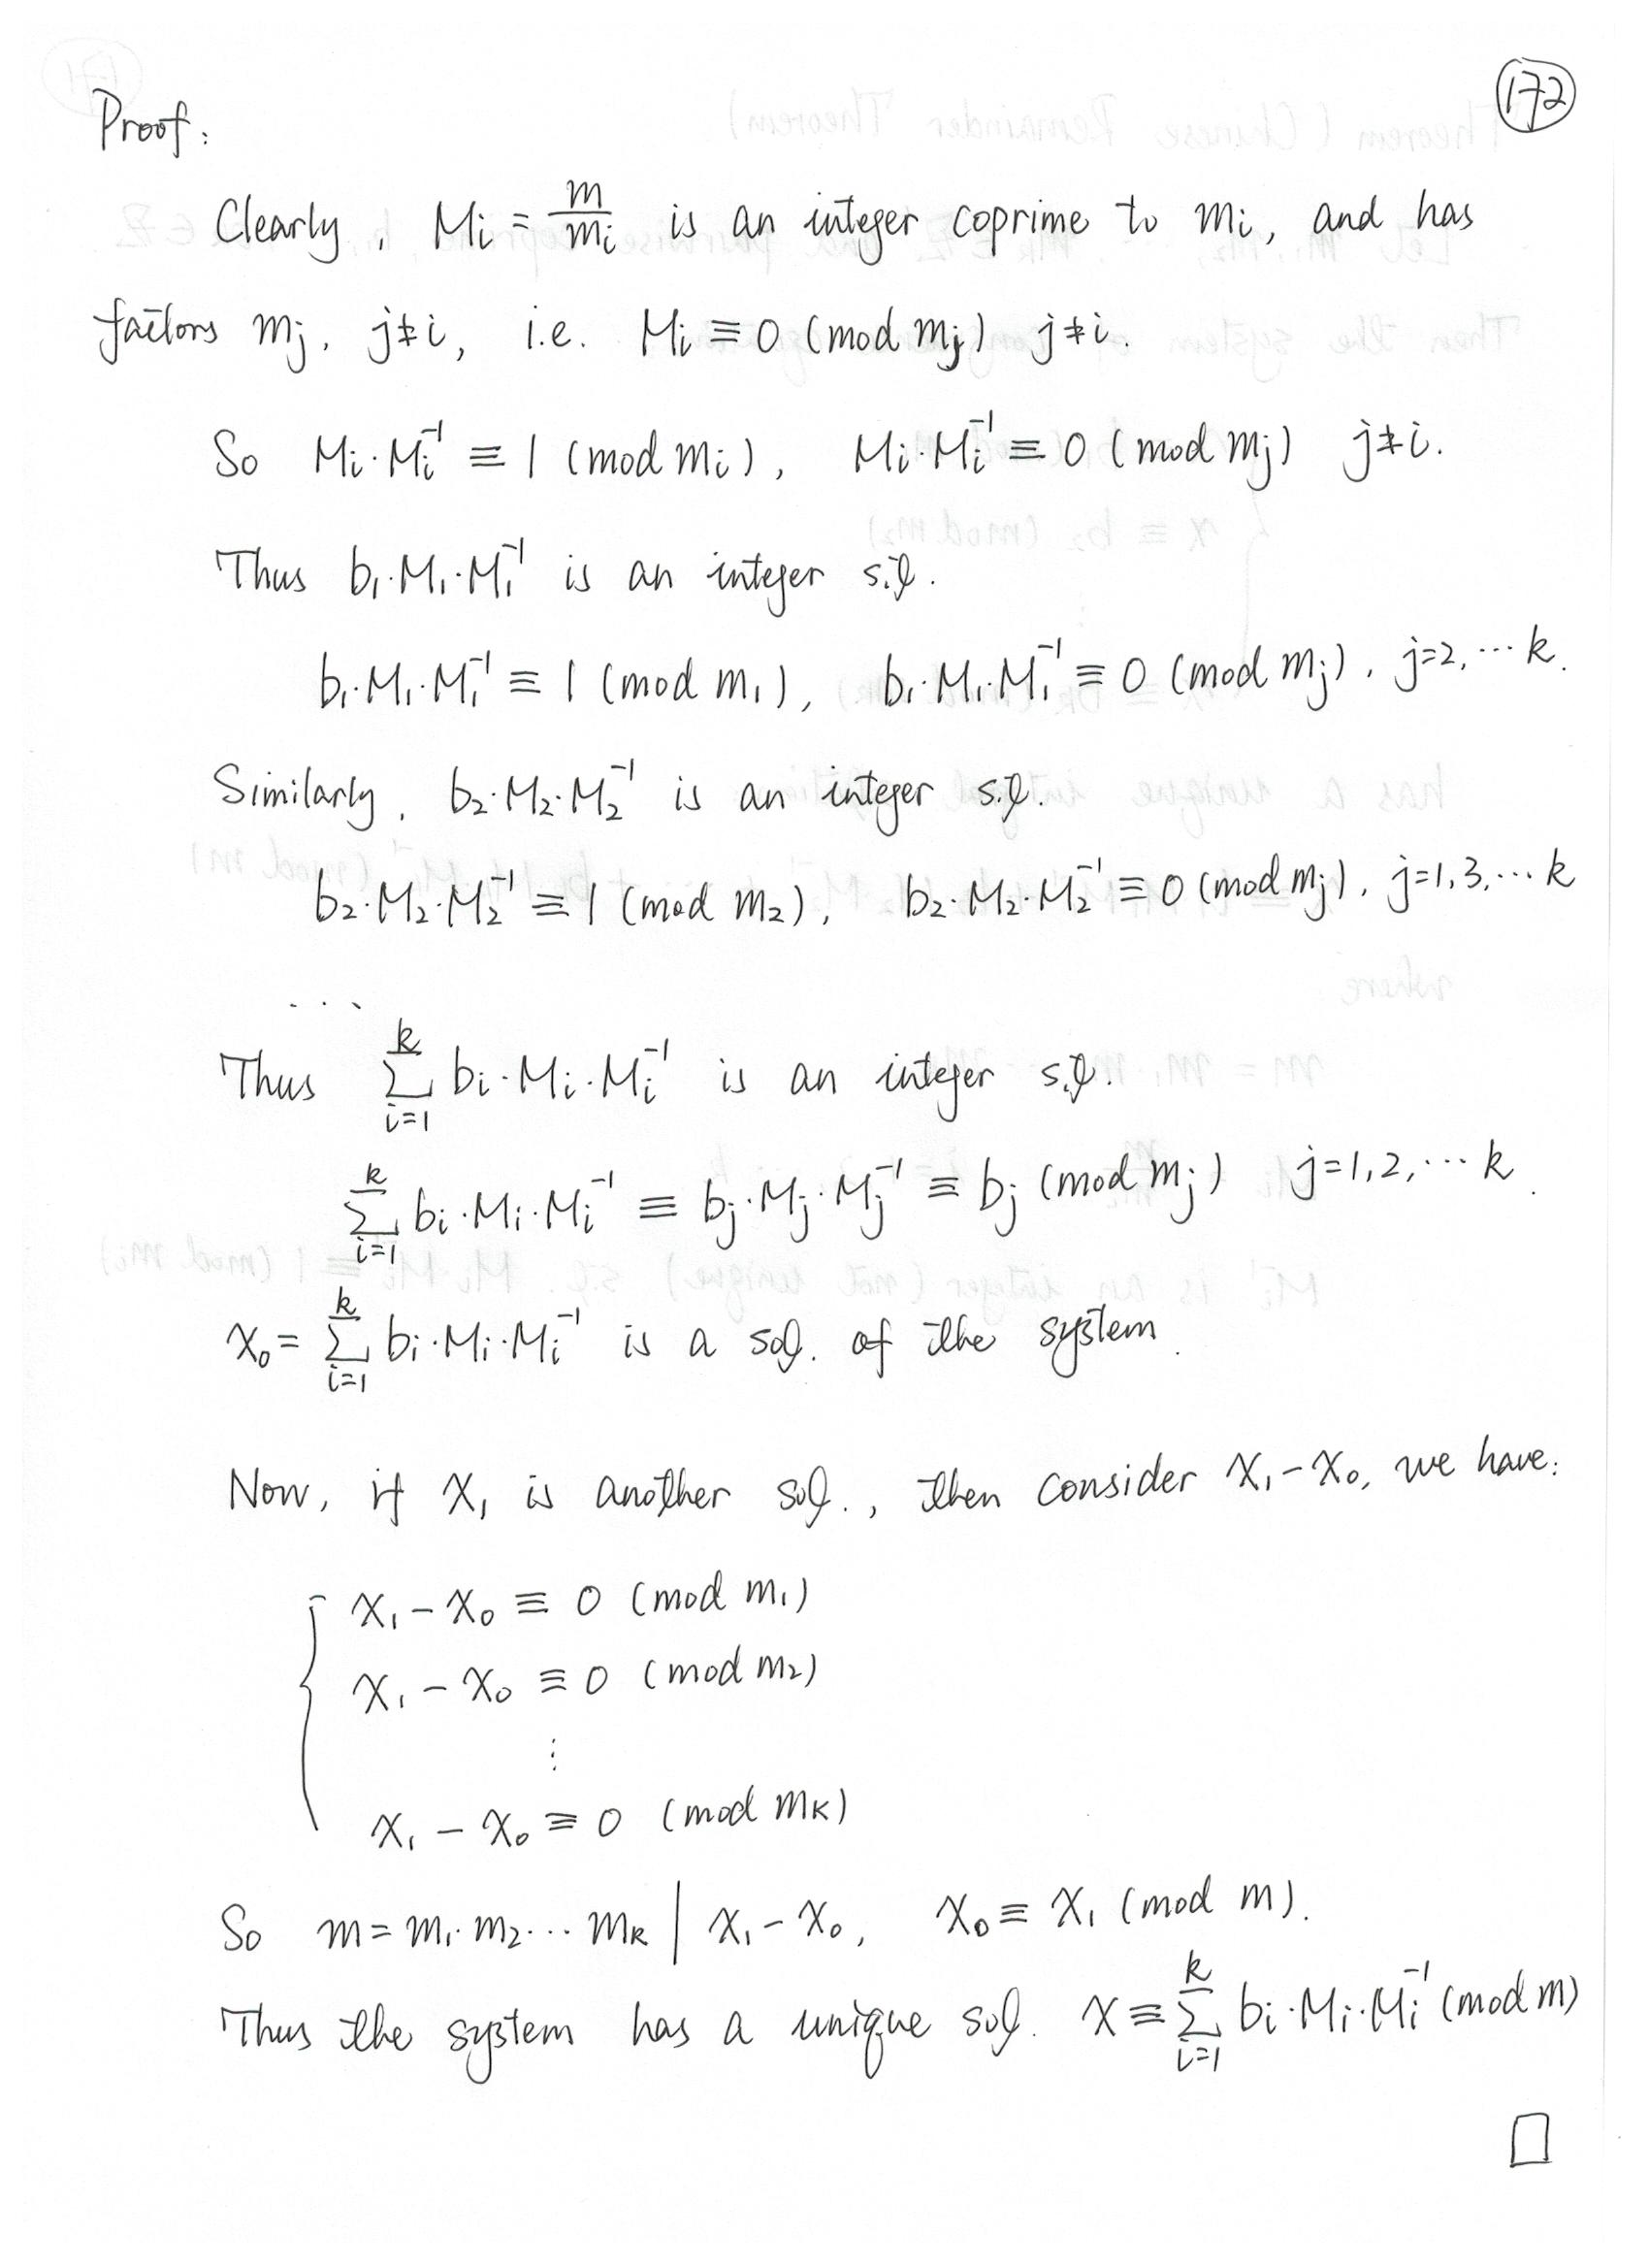 172
Proof:
Clearly, Mi = m/mi is an integer coprime to mi, and has
factors mj, j≠i, i.e. Mi ≡ 0 (mod mj) j≠i.
So Mi·Mi⁻¹ ≡ 1 (mod mi), Mi·Mi⁻¹ ≡ 0 (mod mj) j≠i.
Thus b₁·M₁·M₁⁻¹ is an integer s.t.
b₁·M₁·M₁⁻¹ ≡ 1 (mod m₁), b₁·M₁·M₁⁻¹ ≡ 0 (mod mj), j=2,⋯k.
Similarly, b₂·M₂·M₂⁻¹ is an integer s.t.
b₂·M₂·M₂⁻¹ ≡ 1 (mod m₂), b₂·M₂·M₂⁻¹ ≡ 0 (mod mj), j=1,3,⋯k
...
Thus ∑_{i=1}^{k} bi·Mi·Mi⁻¹ is an integer s.t.
∑_{i=1}^{k} bi·Mi·Mi⁻¹ ≡ bj·Mj·Mj⁻¹ ≡ bj (mod mj) j=1,2,⋯k.
x₀ = ∑_{i=1}^{k} bi·Mi·Mi⁻¹ is a sol. of the system.
Now, if x₁ is another sol., then consider x₁-x₀, we have:
x₁ - x₀ ≡ 0 (mod m₁)
x₁ - x₀ ≡ 0 (mod m₂)
⋮
x₁ - x₀ ≡ 0 (mod mk)
So m = m₁·m₂·⋯mk | x₁-x₀, x₀ ≡ x₁ (mod m).
Thus the system has a unique sol. x ≡ ∑_{i=1}^{k} bi·Mi·Mi⁻¹ (mod m)
□